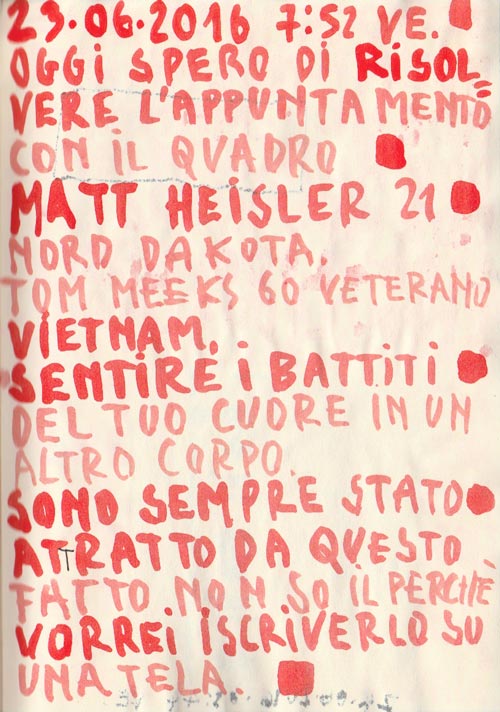 23.06.2016 7:52 VE.
OGGI SPERO DI RISOL=
VERE L'APPUNTAMENTO
CON IL QUADRO
MATT HEISLER 21
NORD DAKOTA.
TOM MEEKS 60 VETERANO
VIETNAM.
SENTIRE I BATTITI
DEL TUO CUORE IN UN
ALTRO CORPO.
SONO SEMPRE STATO
ATTRATTO DA QUESTO
FATTO NON SO IL PERCHÈ
VORREI ISCRIVERLO SU
UNA TELA.